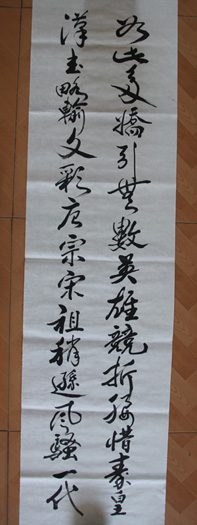 如此多娇引无數英雄競折腰惜秦皇
漢武略輸文彩唐宗宋祖稍遜風騷一代